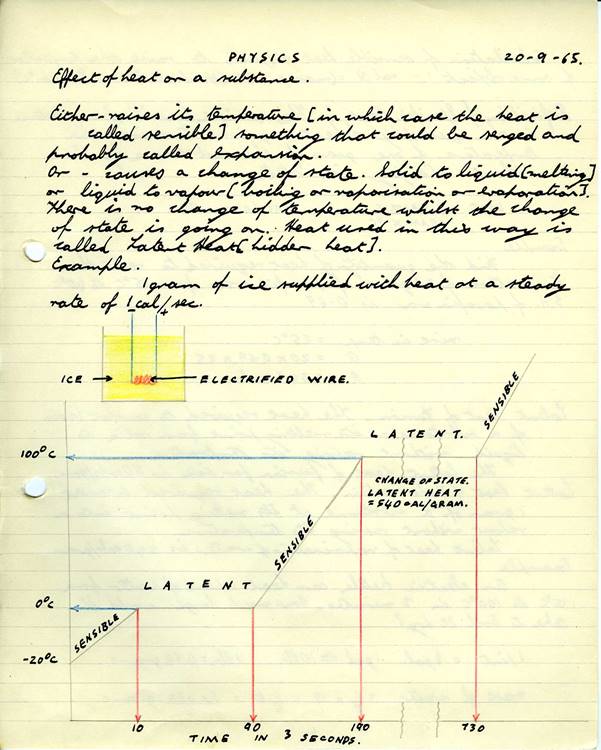 PHYSICS 20-9-65.
Effect of heat on a substance.
Either - raises its temperature [in which case the heat is
called sensible] something that could be sensed and
probably called expansion.
Or - causes a change of state. Solid to liquid [melting]
or liquid to vapour [boiling or vaporisation or evaporation].
There is no change of temperature whilst the change
of state is going on. Heat used in this way is
called Latent Heat [hidden heat].
Example.
1 gram of ice supplied with heat at a steady
rate of 1 cal/sec.
- +
ICE → ← ELECTRIFIED WIRE.
SENSIBLE
LATENT.
100°C
CHANGE OF STATE.
LATENT HEAT
=540 CAL/GRAM.
SENSIBLE
LATENT
0°C
SENSIBLE
-20°C
10 90 190 730
TIME IN SECONDS.